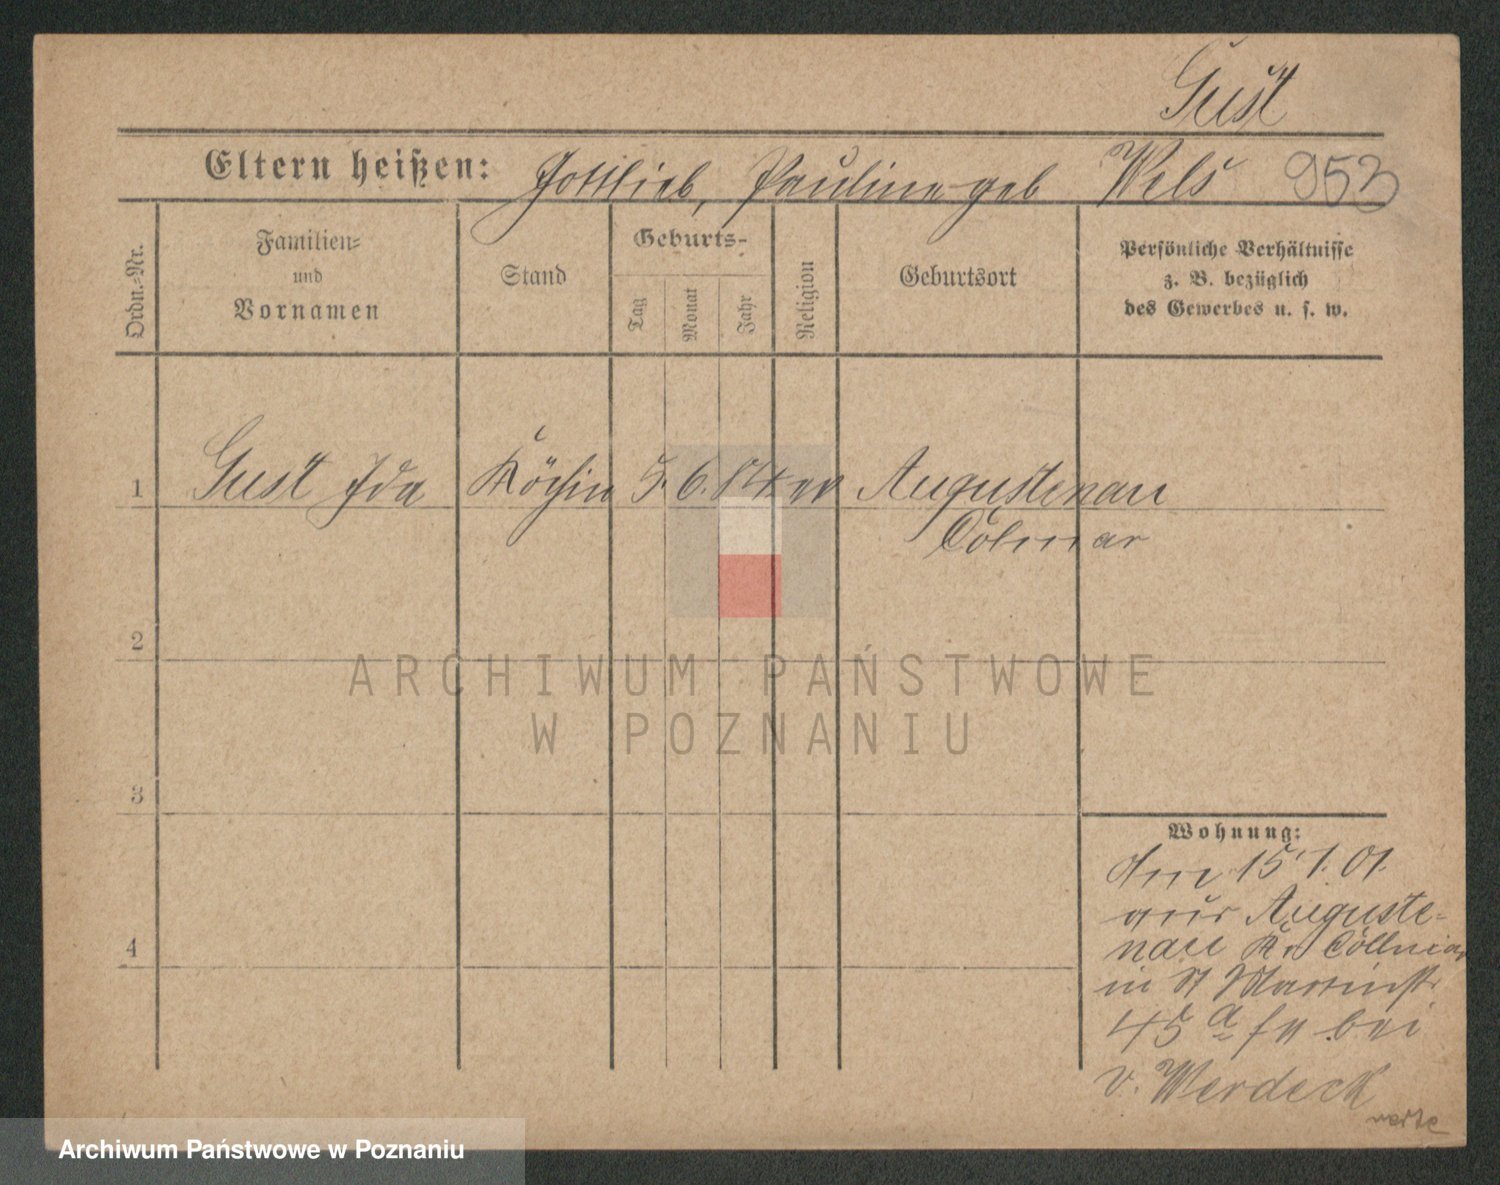 Gust
Eltern heißen: Gottlieb, Pauline geb Wels 953
Ordn.-Nr.
Familien-
und
Vornamen
Stand
Geburts-
Tag
Monat
Jahr
Religion
Geburtsort
Persönliche Verhältnisse
z. B. bezüglich
des Gewerbes u. s. w.
1 Gust Ida Köchin 5. 6. 84 ev Augustenau
Colmar
2
ARCHIWUM PAŃSTWOWE
W POZNANIU
3
4
Wohnung:
Am 15/1. 01.
aus Auguste-
nau Kr Collmar
in St Martinstr
45 a bei
v. Werdeck
Archiwum Państwowe w Poznaniu